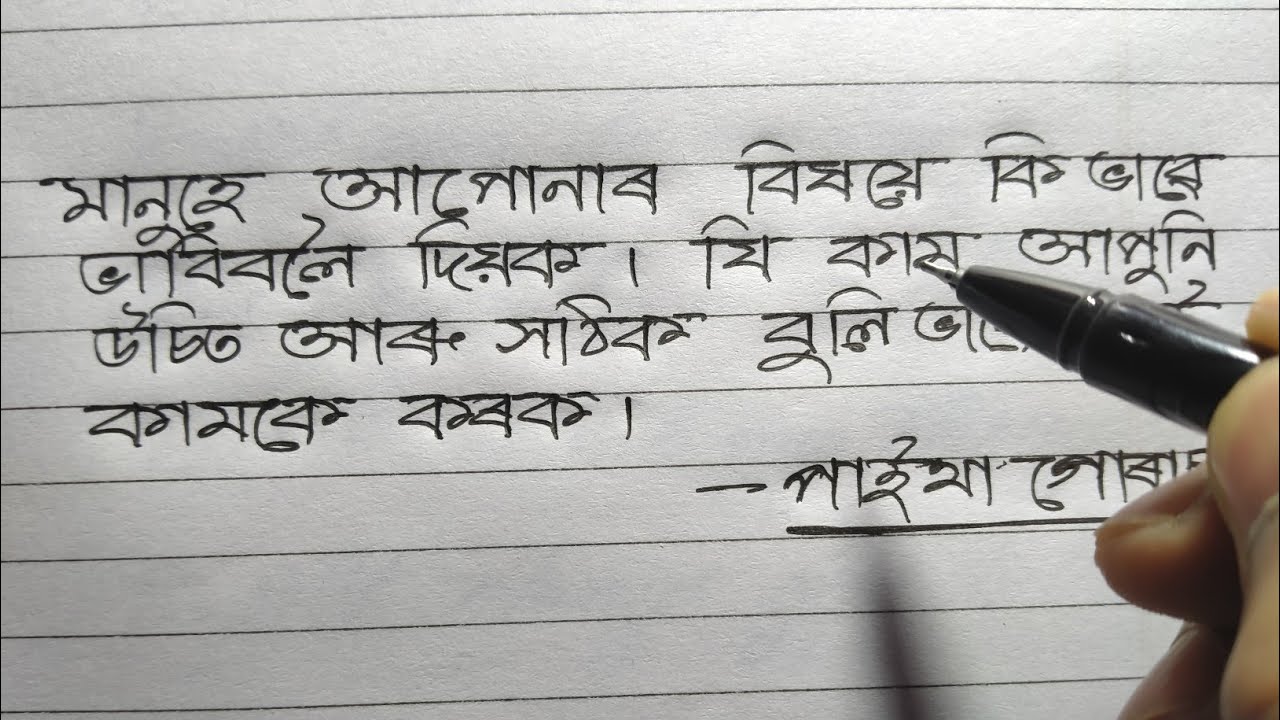 মানুহে আপোনাৰ বিষয়ে কি ভাবে
ভাবিবলৈ দিয়ক। যি কাম আপুনি
উচিত আৰু সঠিক বুলি
কামকে কৰক।
- পাইথাগোৰাচ